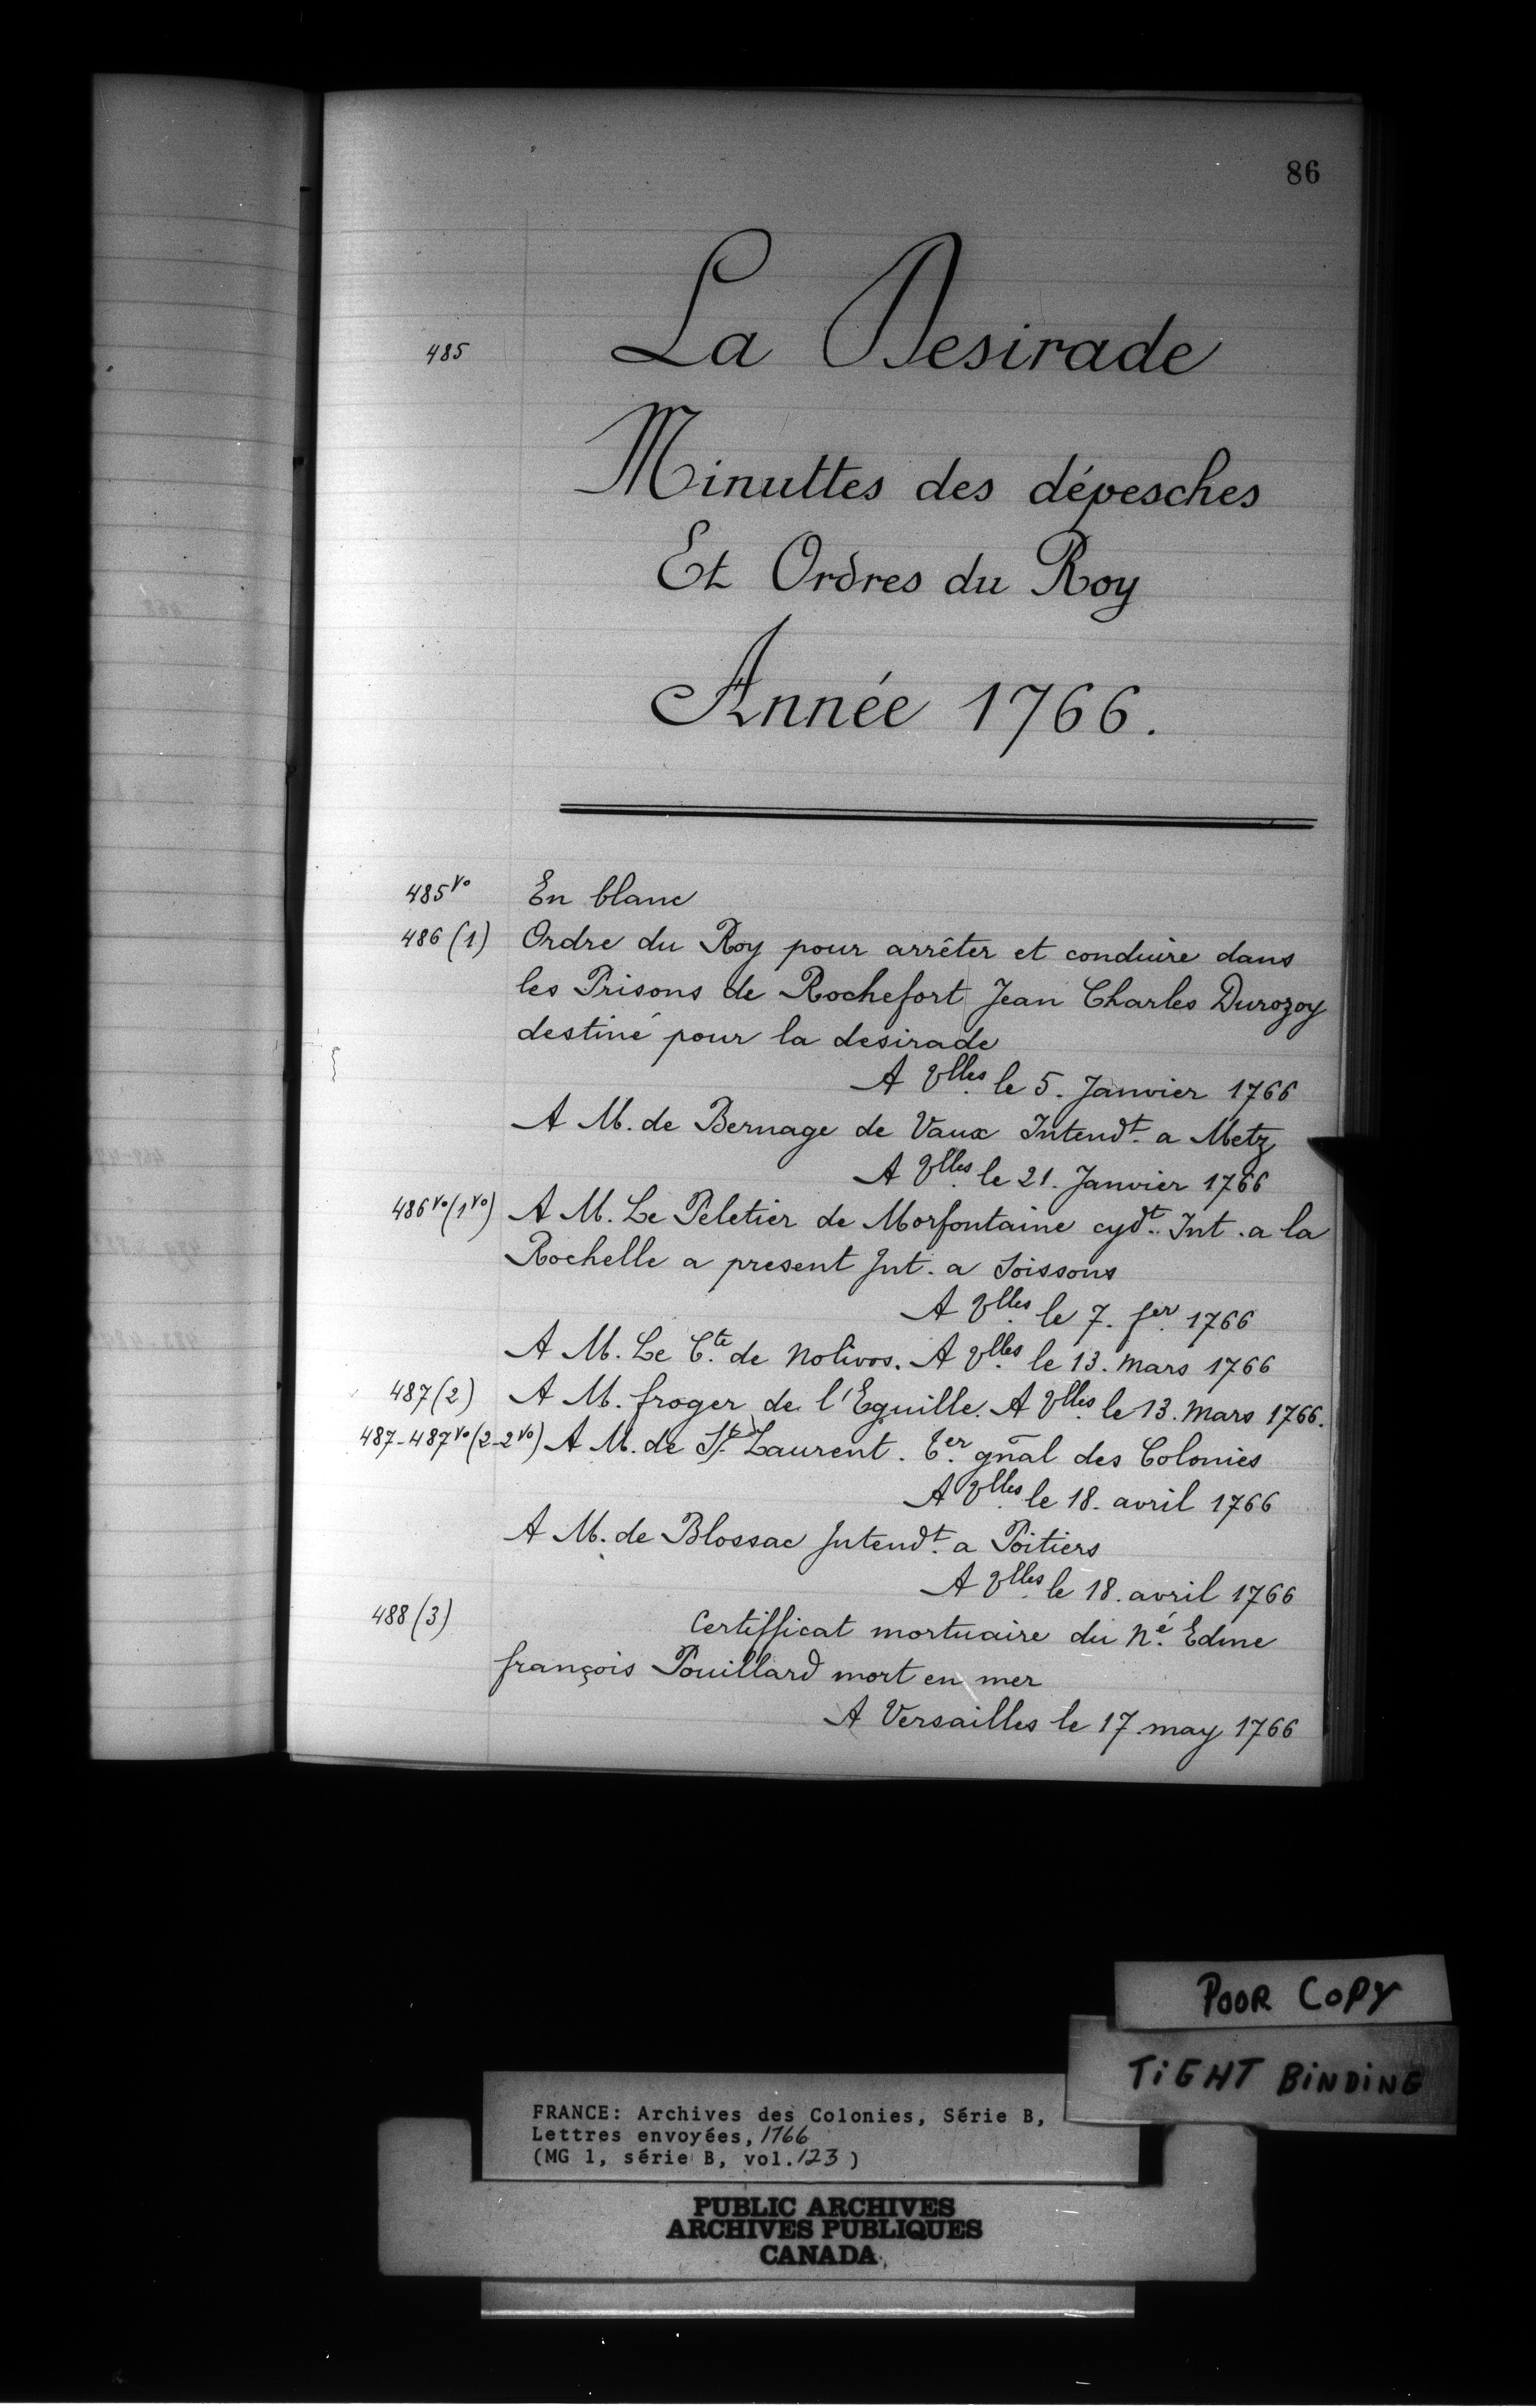 86
485 La Desirade
Minuttes des dépesches
Et Ordres du Roy
Année 1766.
485 vo En blanc
486 (1) Ordre du Roy pour arrêter et conduire dans
les Prisons de Rochefort Jean Charles Durozoy
destiné pour la desirade
A Vlles le 5. Janvier 1766
A M. de Bernage de Vaux Intendt. a Metz
A Vlles le 21. Janvier 1766
486 vo (1 vo) A M. Le Peletier de Morfontaine cydt. Int. a la
Rochelle a present Int. a Soissons
A Vlles le 7. fer 1766
A M. Le Cte de Nolivos. A Vlles le 13. mars 1766
487 (2) A M. froger de l'Eguille. A Vlles le 13. mars 1766.
487-487 vo (2-2 vo) A M. de St Laurent. Cer gñal des Colonies
A Vlles le 18. avril 1766
A M. de Blossac Intendt. a Poitiers
A Vlles le 18. avril 1766
488 (3) Certifficat mortuaire du Né Edme
françois Pouillard mort en mer
A Versailles le 17. may 1766
POOR COPY
TIGHT BINDING
FRANCE: Archives des Colonies, Série B,
Lettres envoyées, 1766
(MG 1, série B, vol. 123)
PUBLIC ARCHIVES
ARCHIVES PUBLIQUES
CANADA